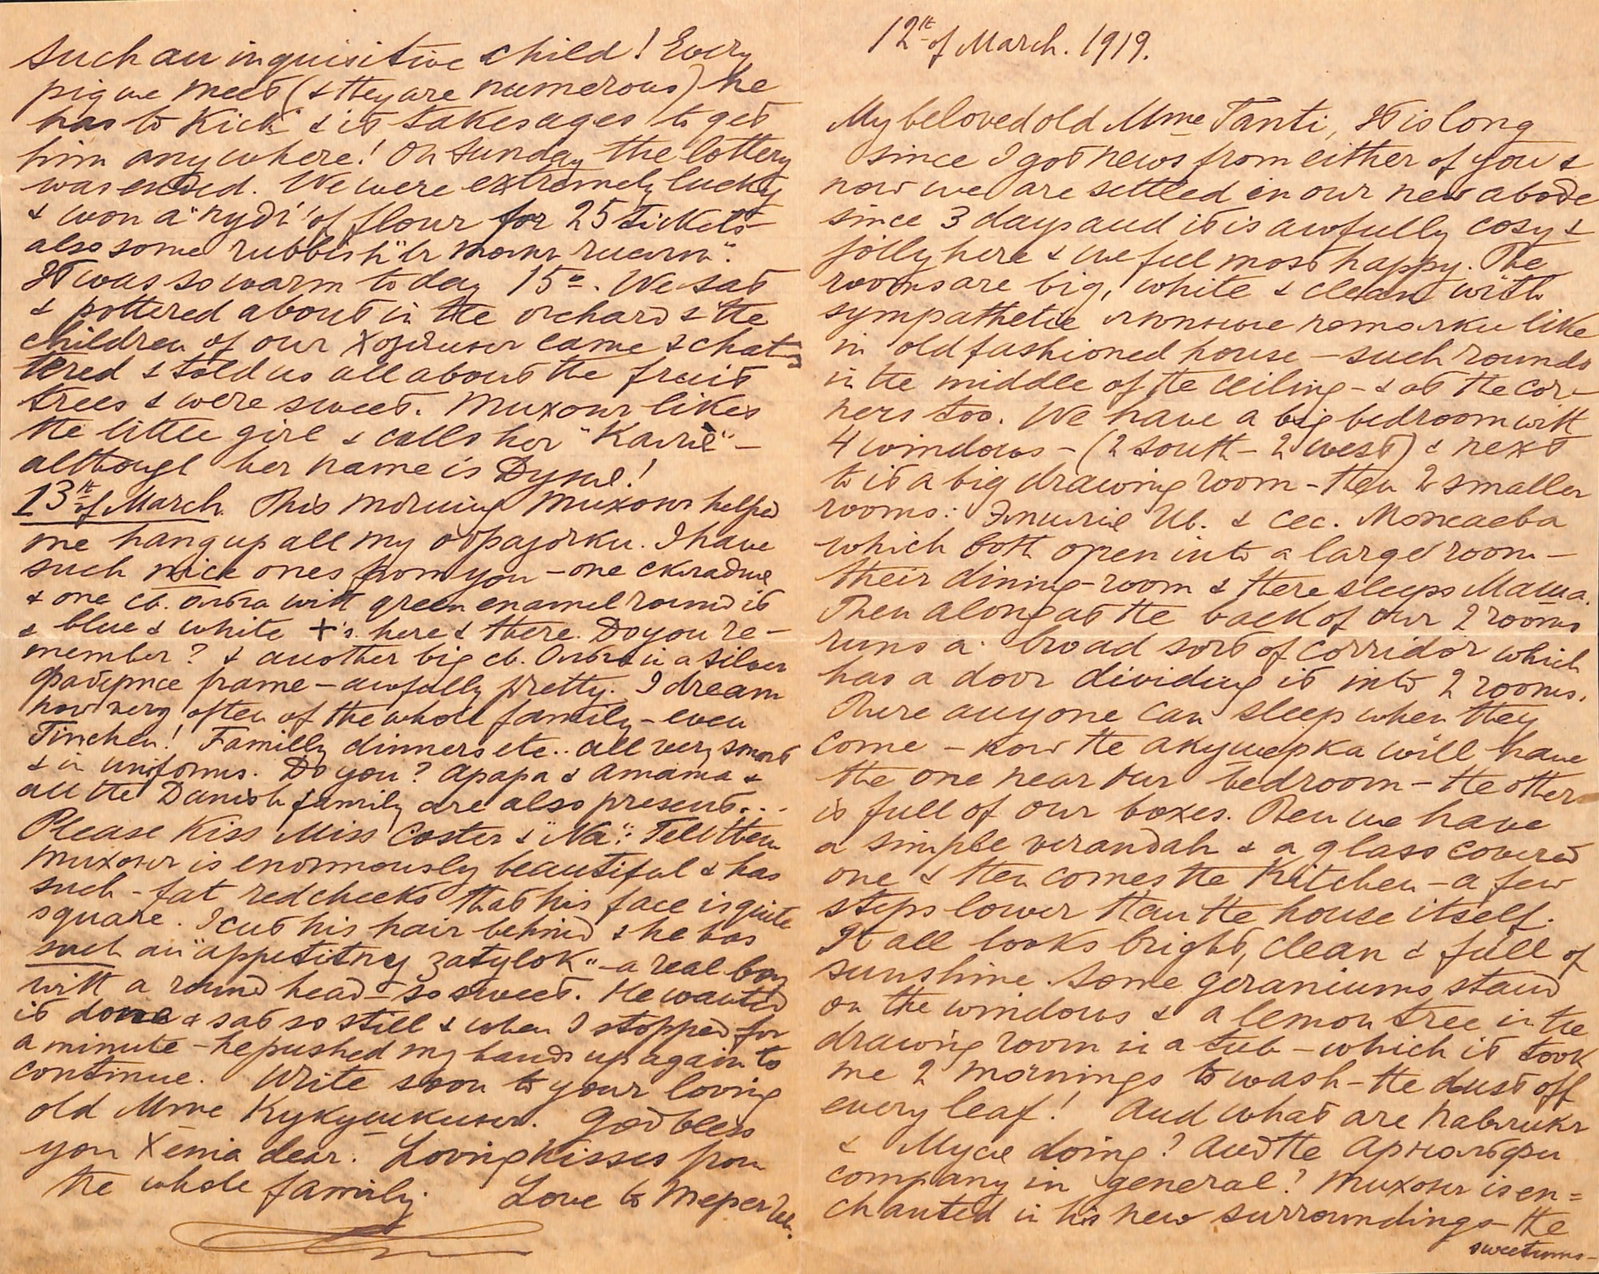 12th of March. 1919.
My beloved old Mme Tanti, It is long
since I got news from either of you &
now we are settled in our new abode
since 3 days and it is awfully cosy &
jolly here & we feel most happy. The
rooms are big, white & clean with
sympathetic remarku like
in old fashioned house – such rounds
in the middle of the ceiling – & at the cor-
ners too. We have a big bedroom with
4 windows – (2 south – 2 west) & next
to it a big drawing room – then 2 smaller
rooms: Ив. &
which both open into a large room –
their dining-room & there sleeps Маша.
Then along at the back of our 2 rooms
runs a broad sort of corridor which
has a door dividing it into 2 rooms.
There anyone can sleep when they
come – now the акушерка will have
the one near our bedroom – the other
is full of our boxes. Then we have
a simple verandah & a glass covered
one & then comes the kitchen – a few
steps lower than the house itself.
It all looks bright, clean & full of
sunshine. Some geraniums stand
on the windows & a lemon tree in the
drawing room in a tub – which it took
me 2 mornings to wash – the dust off
every leaf! And what are
& doing? And the
company in general? Тихон is en=
chanted in his new surroundings – the
sweetums –
such an inquisitive child! Every
pig we meet (& they are numerous) he
has to kick & it takes ages to get
him anywhere! On Sunday the lottery
was ended. We were extremely lucky
& won a "пудъ" of flour for 25 tickets
also some rubbish
It was so warm today 15°. We sat
& pottered about in the orchard & the
children of our came & chat=
tered & told us all about the fruit
trees & were sweet. Тихон likes
the little girl & calls her –
although her name is
13th of March. This morning Тихон helped
me hang up all my образочки. I have
such nice ones from you – one складни
& one св. Ольга with green enamel round it
& blue & white +'s here & there. Do you re-
member? & another big св. Ольга in a silver
frame – awfully pretty. I dream
now very often of the whole family – even
Tinchen! Familly dinners etc.. all very smart
& in uniforms. Do you? Apapa & Amama &
all the Danish family are also present...
Please kiss Miss Coster & "Na". Tell them
Тихон is enormously beautiful & has
such – fat red cheeks that his face is quite
square. I cut his hair behind & he has
such an "appetitny zatylok" – a real boy
with a round head – so sweet. He wanted
it done & sat so still & when I stopped for
a minute – he pushed my hands up again to
continue. Write soon to your loving
old Mme Кукушкинъ. God bless
you Xenia dear. Loving kisses from
the whole family. Love to